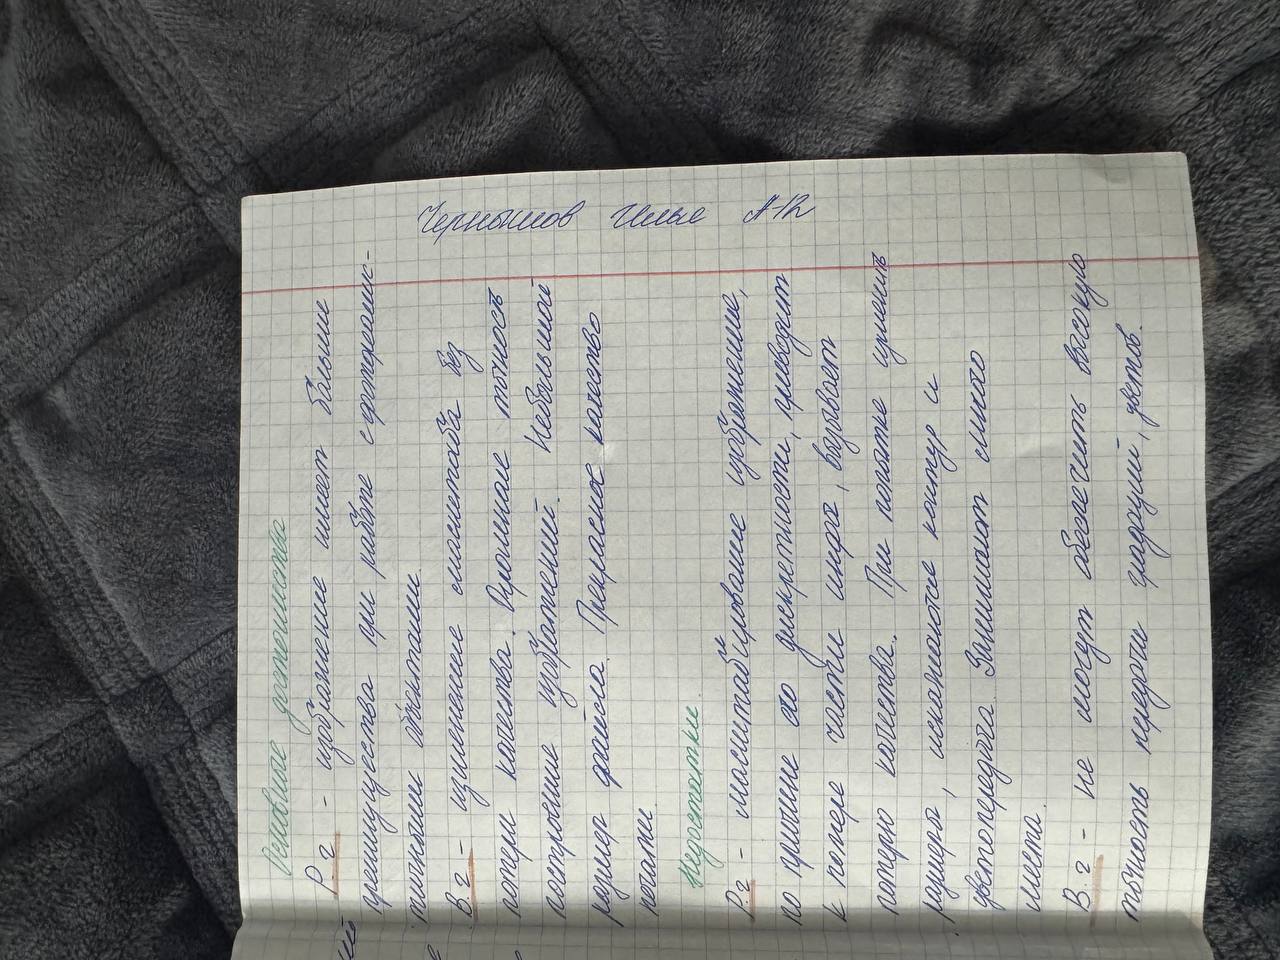 Чернышов Илья А-12
Основные достоинства
Р.г - изображение имеет большие
преимущества при работе с фотореалис-
тичными объектами.
В.г - изменение масштаба без
потери качества. Огромная точность
построение изображений. Небольшой
размер файла. Прекрасное качество
печати.
Недостатки.
Р.г - масштабирование изображение,
по причине его дискретности, приводит
к потере части инфы, вызывает
потерю качества. При попытке изменить
размера, искажаются контур и
цветопередача. Занимают много
места.
В.г - не могут обеспечить высокую
точность передачи градаций, цветов.